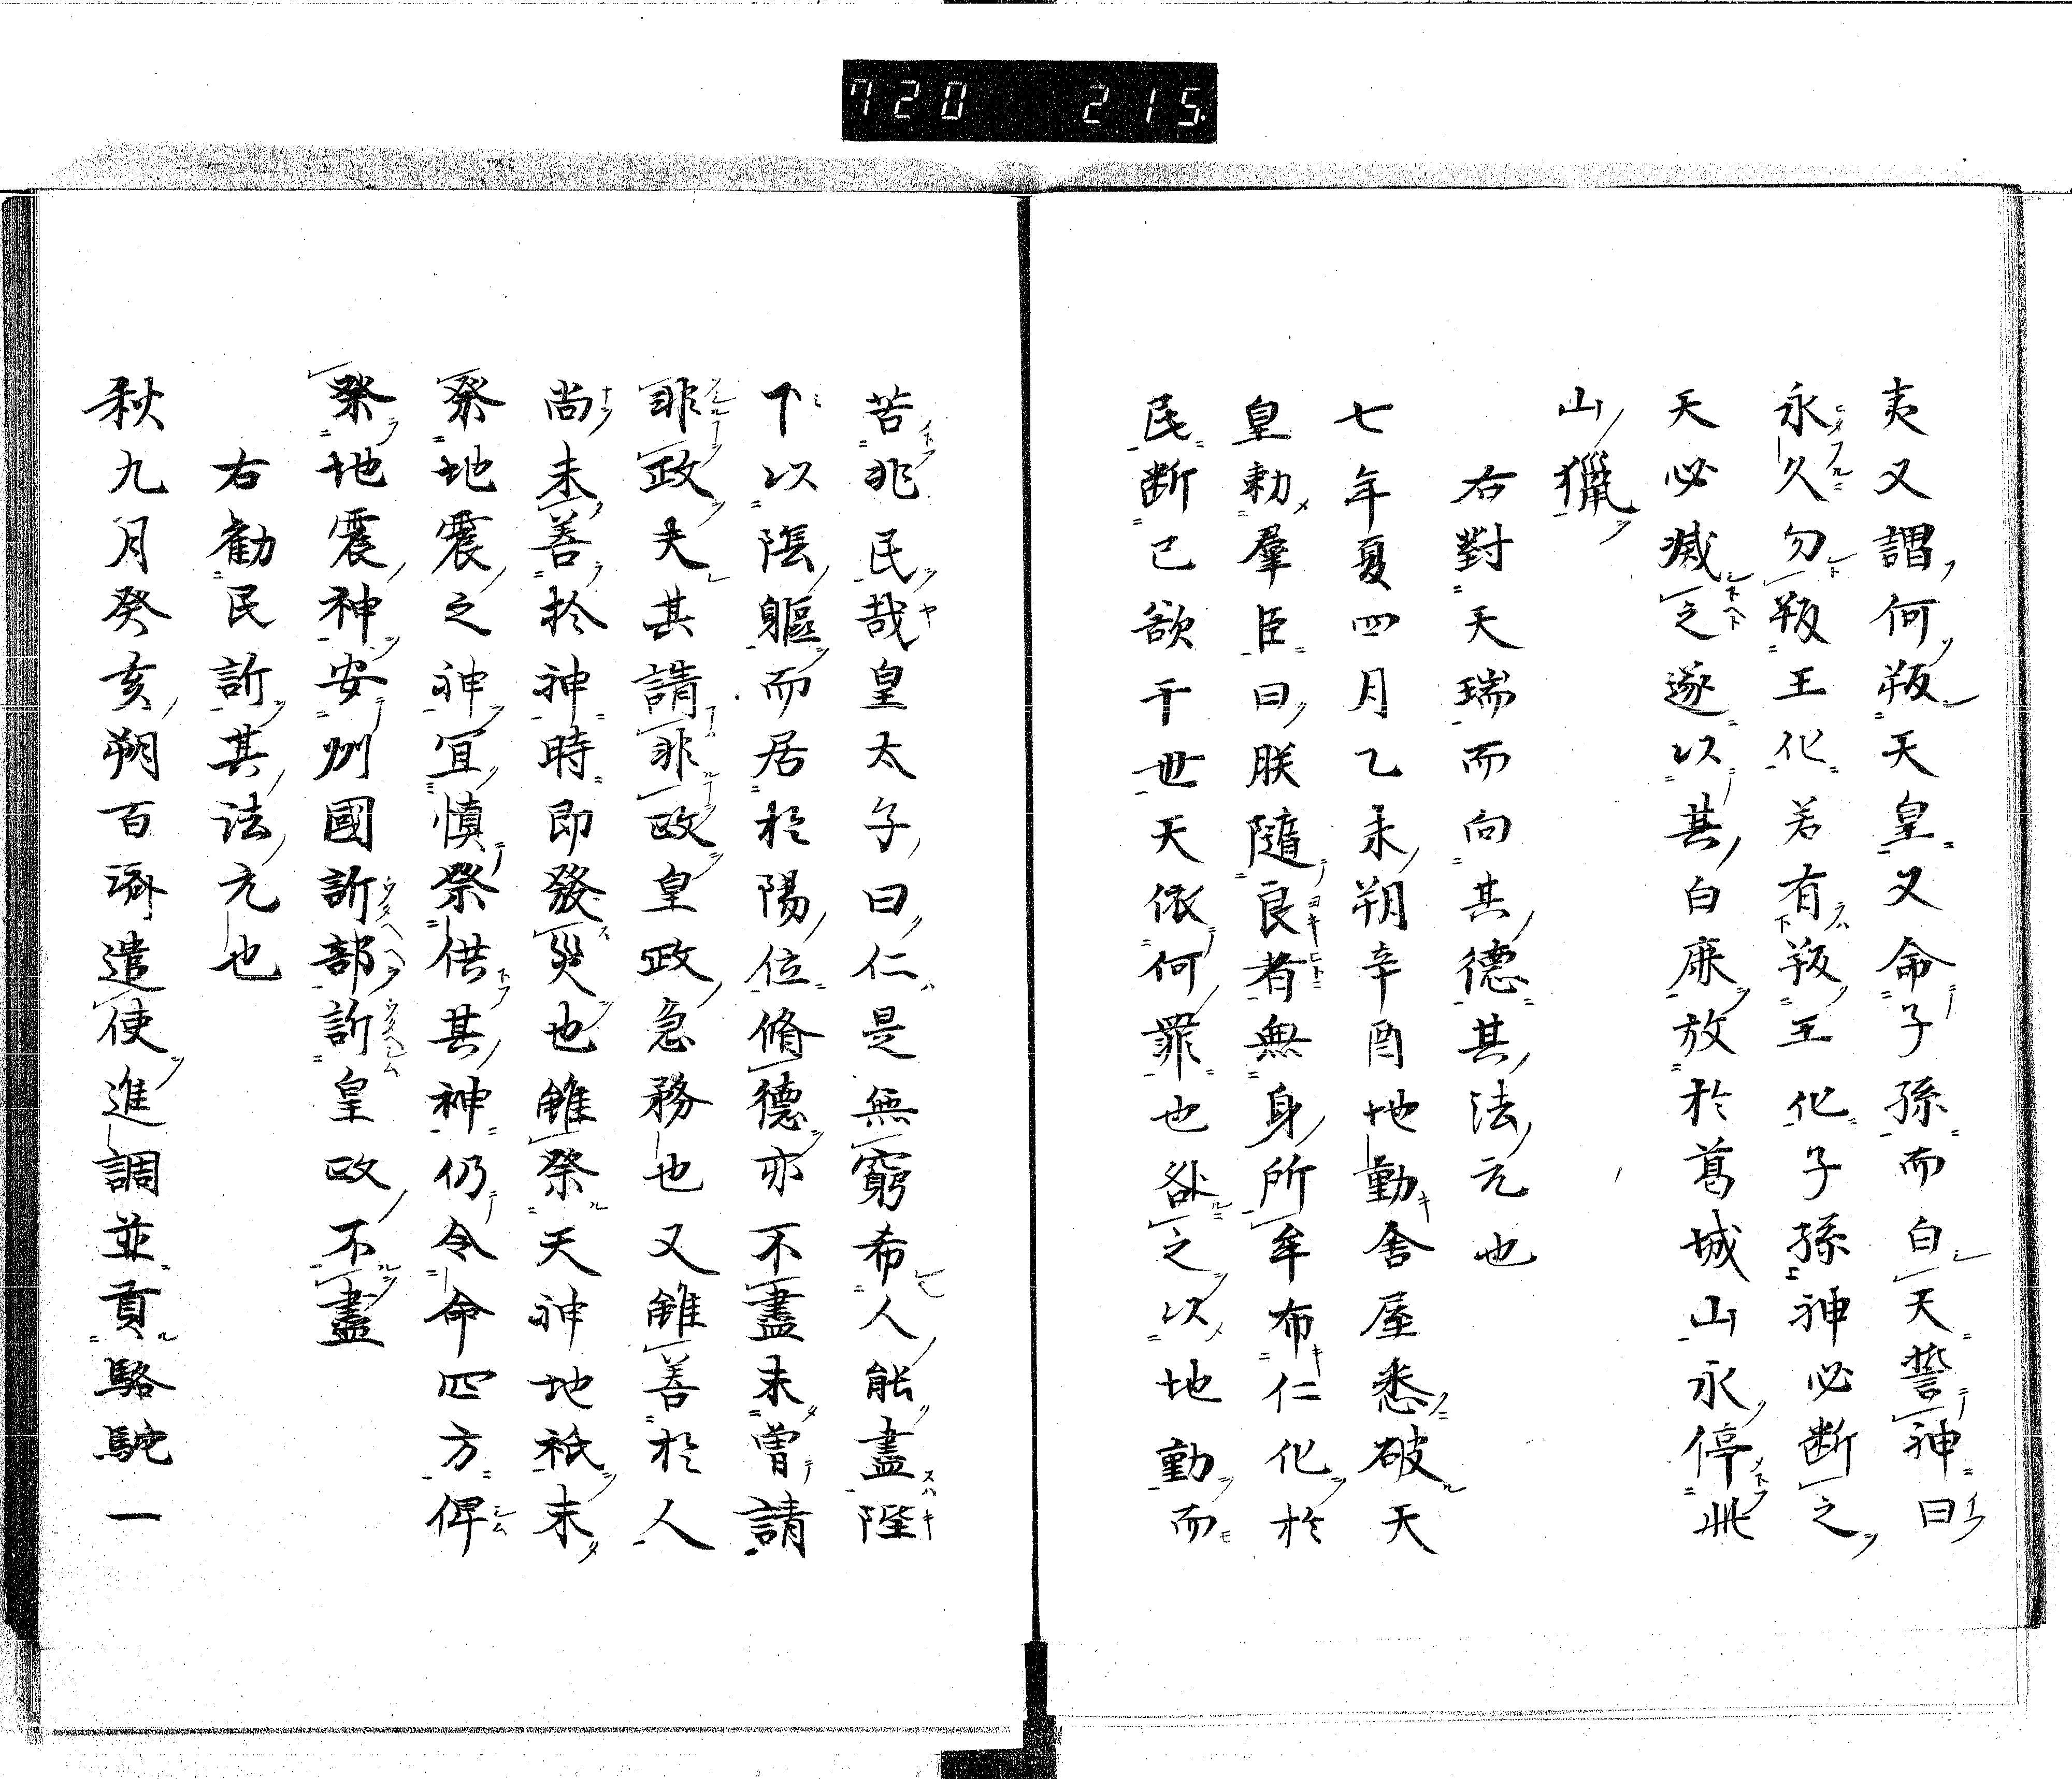 720 215.
夷又謂何叛天皇又命子孫而白天誓神曰
永久勿叛王化若有叛王化子孫神必断之
天必滅之遂以其白鹿放於葛城山永停此
山獵
右對天瑞而向其德其法元也
七年夏四月乙未朔辛酉地動舍屋悉破天
皇勅羣臣曰朕隨良者無身所牟布仁化於
民断已欲千世天依何罪也欲之以地動而
苦兆民哉皇太子曰仁是無窮希人能盡陛
下以陰軀而居於陽位脩德亦不盡未曽請
非政夫其請非政皇政急務也又雖善於人
尚未善於神時即發災也雖祭天神地祇未
祭地震之神宜慎祭供其神仍令命四方俾
祭地震神安州國訢部訢皇政不盡
右勧民訢其法元也
秋九月癸亥朔百済遣使進調並貢駱駝一